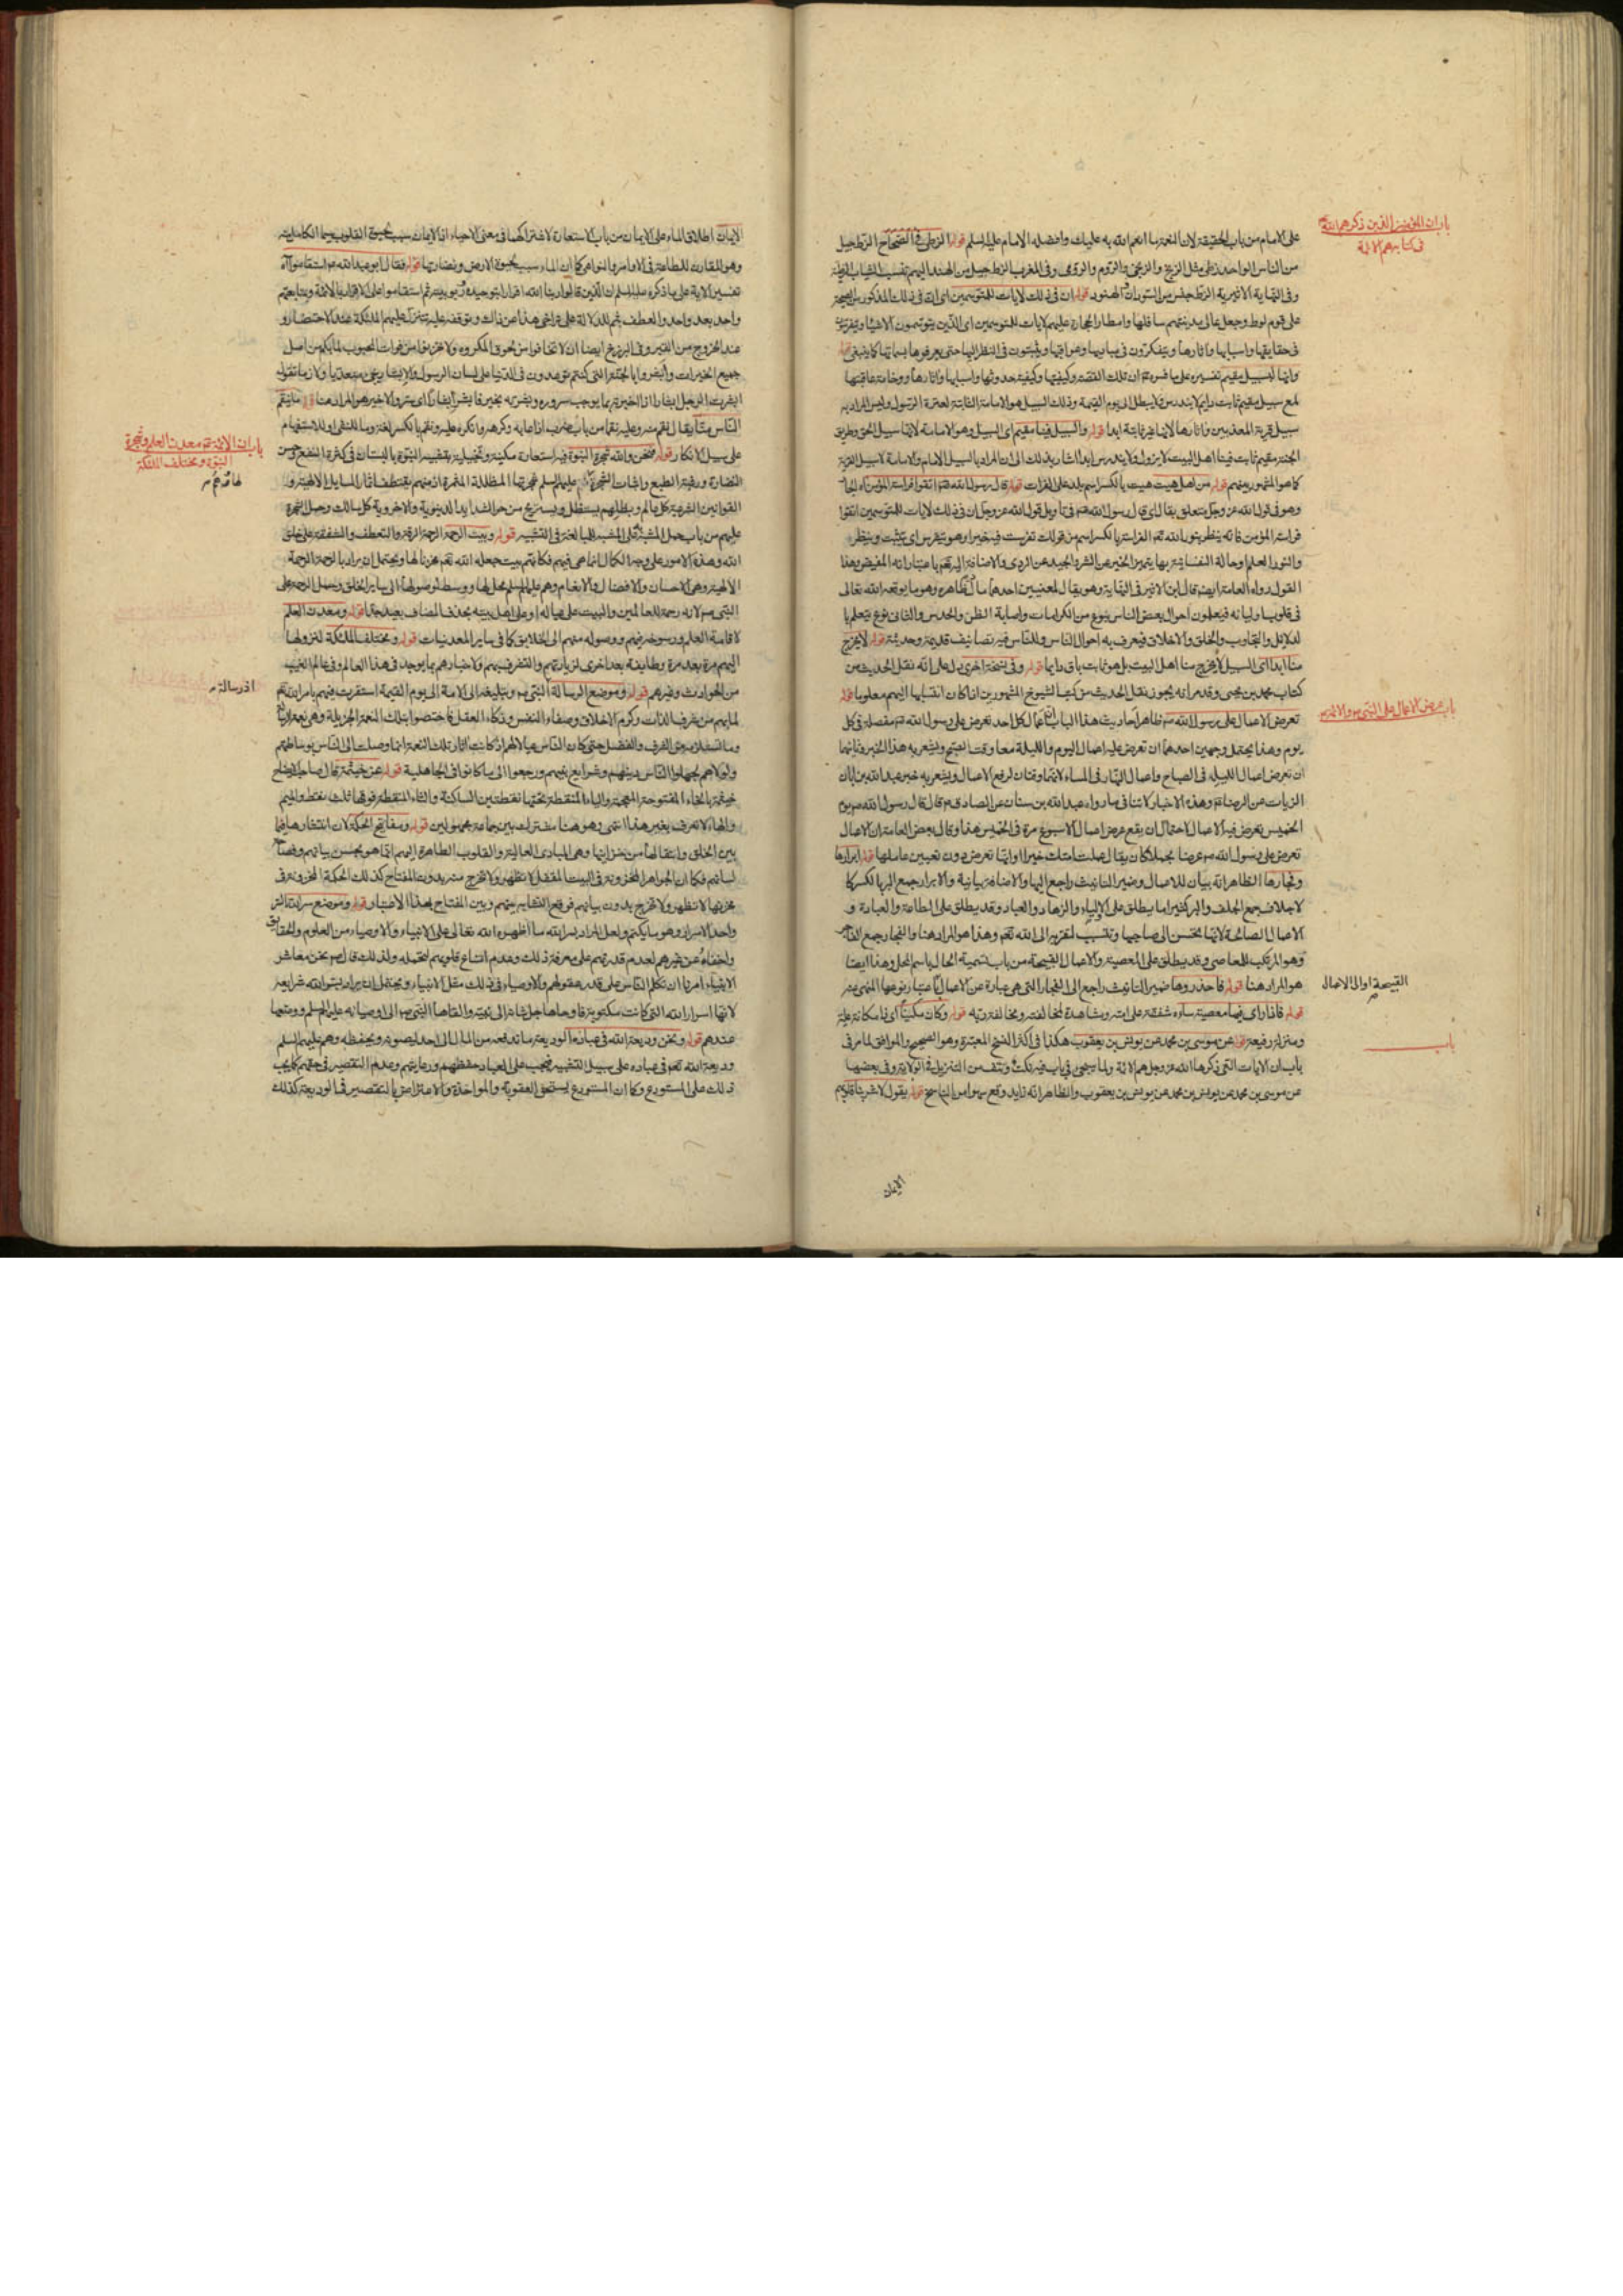 باب ان المتوسمين الذين ذكرهم الله تع
فى كتابه هم الائمة
على الامام من باب الحقيقة لان النعمة ما انعم الله به عليك وافضله الامام عليه السلم قوله الزطى فى الصحاح الزط جيل
من الناس الواحد زطى مثل الزنج والزنجى والروم والرومى وفى المغرب الزط جيل من الهند اليهم تنسب الثياب الزطية
وفى النهاية الاثيرية الزط جنس من السودان والهنود قوله ان فى ذلك لايات للمتوسمين اى ان فى ذلك المذكور من الصيحة
على قوم لوط وجعل عالى مدينتهم سافلها وامطار الحجارة عليهم لايات للمتوسمين اى الذين يتوسمون الاشياء ويتفرسون
فى حقايقها واسبابها واثارها ويتفكرون فى مباديها وعواقبها ويثبتون فى النظر اليها حتى يعرفوها بسماتها كما ينبغى قوله
وانها لبسبيل مقيم تفسيره على ما فسره ان تلك القصة وكيفيتها وكيفية حدوثها واسبابها واثارها ووخامة عاقبتها
لمع سبيل مقيم ثابت دايم لا يندرس ولا يبطل الى يوم القيمة وذلك السبيل هو الامامة الثابتة لعترة الرسول وليس المراد به
سبيل قرية المعذبين واثارها لانها غير ثابتة ابدا قوله والسبيل فينا مقيم اى السبيل وهو الامامة لانها سبيل الحق وطريق
الجنة مقيم ثابت فينا اهل البيت لا يزول ولا يندرس ابدا اشار بذلك الى ان المراد بالسبيل الامام والامامة لا سبيل القرية
كما هو المشهور بينهم قوله من اهل هيت هيت بالكسر اسم بلد على الفرات قوله قال رسول الله ص اتقوا فراسة المؤمن اه الجار
وهو فى قول الله عز وجل متعلق بقال اى قال رسول الله ص فى تاويل قول الله عز وجل ان فى ذلك لايات للمتوسمين اتقوا
فراسة المؤمن فانه ينظر بنور الله تع الفراسة بالكسر اسم من قولك تفرست فيه خيرا وهو يتفرس اى يتثبت وينظر
والنور العلم او حالة النفسانية بها يتميز الخير عن الشر والجيد عن الردى والاضافة اليه تع باعتبار انه المفيض وهذا
القول رواه العامة ايضا قال ابن الاثير فى النهاية وهو يقال لمعنيين احدهما ما دل ظاهره وهو ما يوقعه الله تعالى
فى قلوب اوليائه فيعلمون احوال بعض الناس بنوع من الكرامات واصابة الظن والحدس والثانى نوع يتعلم با
لدلايل والتجارب والخلق والاخلاق فيعرف به احوال الناس وللناس فيه تصانيف قديمة وحديثة قوله لا يخرج
منا ابدا اى السبيل لا يخرج منا اهل البيت بل هو ثابت باق دايما قوله وفى نسخة اخرى دل على انه نقل الحديث من
كتاب محمد بن يحيى وقد مر انه يجوز نقل الحديث من كتب الشيوخ المشهورين اذا كان انتسابها اليهم معلوما قوله
باب عرض الاعمال على النبى ص والائمة ع
تعرض الاعمال على رسول الله ص ظاهر احاديث هذا الباب ان اعمال كل احد تعرض على رسول الله ص مفصلة فى كل
يوم وهذا يحتمل وجهين احدهما ان تعرض عليه اعمال اليوم والليلة معا وقت الصبح ويشعر به هذا الخبر وثانيهما
ان تعرض اعمال الليلة فى الصباح واعمال النهار فى المساء لانهما وقتان لرفع الاعمال ويشعر به خبر عبد الله بن ابان
الزيات عن الرضا ع وهذه الاخبار لا تنافى ما رواه عبد الله بن سنان عن الصادق ع قال قال رسول الله ص يوم
الخميس تعرض فيه الاعمال لاحتمال ان يقع عرض اعمال الاسبوع مرة فى الخميس هذا وقال بعض العامة ان الاعمال
تعرض على رسول الله ص عرضا مجملا كان يقال عملت امتك خيرا او انها تعرض دون تعيين عاملها قوله ابرارها
وفجارها الظاهر انه بيان للاعمال وضمير التانيث راجع اليها والاضافة بيانية والابرار جمع البر بالكسر كا
لاجلاف جمع الجلف والبر كثيرا ما يطلق على الاولياء والزهاد والعباد وقد يطلق على الطاعة والعبادة و
الاعمال الصالحة لانها تحسن الى صاحبها وتنسب لتقربه الى الله تع وهذا هو المراد هنا والفجار جمع الفاجر
وهو المرتكب للمعاصى وقد يطلق على المعصية والاعمال القبيحة من باب تسمية الحال باسم المحل وهذا ايضا
هو المراد هنا قوله فاحذروها ضمير التانيث راجع الى الفجار التى هى عبارة عن الاعمال باعتبار نوعها المنهى عنه
القبيحة او الى الاعمال
قوله فاذا راى فيها معصية ساءه شفقته على امته ومشاهدة لمخالفته ومخالفة ربه قوله وكان مكينا اى ذا مكانة علية
ومنزلة رفيعة قوله عن موسى بن محمد عن يونس بن يعقوب هكذا فى اكثر النسخ المعتبرة وهو الصحيح والموافق لما مر فى
باب
باب ان الايات التى ذكرها الله عز وجل هم الائمة ولما سيجى فى باب فيه نكت ونتف من التنزيل فى الولاية وفى بعضها
عن موسى بن محمد عن يونس بن محمد عن يونس بن يعقوب والظاهر انه زايد وقع سهوا من الناسخ قوله يقول لاشربنا قلوبهم
الايمان
الايمان اطلاق الماء على الايمان من باب الاستعارة لاشتراكهما فى معنى الاحياء اذ الايمان سبب لحيوة القلوب سيما الكامل منه
وهو المقارن للطاعة فى الاوامر والنواهى كما ان الماء سبب لحيوة الارض ونضارتها قوله فقال ابو عبد الله ع استقاموا اه
تفسير الاية على ما ذكره عليه السلم ان الذين قالوا ربنا الله اقرارا بتوحيده وربوبيته ثم استقاموا على الاقرار بالائمة ومتابعتهم
واحد بعد واحد والعطف بثم للدلالة على تراخى هذا عن ذاك وتوقفه عليه تتنزل عليهم الملئكة عند الاحتضار و
عند الخروج من القبر وفى البرزخ ايضا ان لا تخافوا من لحوق المكروه ولا تحزنوا من فوات المحبوب لما لكم من اصل
جميع الخيرات وابشروا بالجنة التى كنتم توعدون فى الدنيا على لسان الرسول والابشار يجئ متعديا ولازما تقول
ابشرت الرجل ابشارا اذا اخبرته بما يوجب سروره وبشرته بخير فابشر ابشارا اى سر والاخير هو المراد هنا قوله ما ينقم
الناس منا يقال نقم منه وعليه نقما من باب ضرب اذا عابه وكرهه وانكره عليه ونقم بالكسر لغة وما للنفى او للاستفهام
باب ان الائمة ع معدن العلم وشجرة
النبوة ومختلف الملئكة
على سبيل الانكار قوله فنحن والله شجرة النبوة فيه استعارة مكنية وتخييلية بتشبيه النبوة بالبستان فى كثرة النفع وحسن
النضارة ورغبة الطبع واثبات الشجرة لها وهم عليهم السلم شجرتها المظللة المثمرة اذ منهم يقتطف ثمار المسايل الالهية و
القوانين الشرعية كل عالم وبظلهم يستظل ويستريح من حر الشدايد الدنيوية والاخروية كل سالك وحمل الشجرة
عليهم من باب حمل المشبه به على المشبه للمبالغة فى التشبيه قوله وبيت الرحمة الرحمة الرقة والتعطف والشفقة على خلق
الله وهذه الامور على وجه الكمال انما هى فيهم فكانهم بيت جعله الله تع مخزنا لها ويحتمل ان يراد بالرحمة الرحمة
الالهية وهى الاحسان والافضال والانعام وهم عليهم السلم محل لها ووسط لوصولها الى ساير الخلق وحمل الرحمة على
النبى ص لانه رحمة للعالمين والبيت على ... او على اهل بيته بحذف المضاف بعيد جدا قوله ومعدن العلم
لاقامة العلم ورسوخه فيهم ووصوله منهم الى الخلايق كما فى ساير المعدنيات قوله ومختلف الملئكة لنزولها
اليهم مرة بعد مرة وطايفة بعد اخرى لزيارتهم والتشرف بهم ولاخبارهم بما يوجد فى هذا العالم وفى عالم الغيب
من الحوادث وغيرهم قوله وموضع الرسالة النبى ص وتبليغه الى الامة الى يوم القيمة استقرت فيهم بامر الله تع
اذ رسالة
لما بهم من شرف الذات وكرم الاخلاق وصفاء النفس وذكاء العقل فاختصوا بتلك النعمة الجزيلة
ولولاهم لجهلوا الناس دينهم وشرايع نبيهم ورجعوا الى ما كانوا فى الجاهلية قوله عن خيثمة قال صاحب الايضاح
خيثمة بالخاء المفتوحة المعجمة والياء المنقطة تحتها نقطتين الساكنة والثاء المنقطة فوقها ثلث نقط والميم
والهاء لا تعرف بغير هذا انتهى وهو هنا مشترك بين جماعة مجهولين قوله ومفاتيح الحكمة لان انتشارها فيما
بين الخلق وانتقالها من خزاينها وهى المبادى العالية والقلوب الطاهرة اليهم انما هو بحسن بيانهم وفصاحة
لسانهم فكما ان الجواهر المخزونة فى البيت المقفل لا تظهر ولا تخرج منه بدون المفتاح كذلك الحكمة المخزونة فى
مخزنها لا تظهر ولا تخرج بدون بيانهم فوقع التشابه بينهم وبين المفتاح بهذا الاعتبار قوله وموضع سر الله السر
واحد الاسرار وهو ما يكتم ولعل المراد بسر الله ما اظهره الله تعالى على الانبياء والاوصياء من العلوم والحقايق
واخفاه عن غيرهم لعدم قدرتهم على معرفة ذلك وعدم اتساع قلوبهم لتحمله ولذلك قال ص نحن معاشر
الانبياء امرنا ان نكلم الناس على قدر عقولهم والاوصياء فى ذلك مثل الانبياء ويحتمل ان يراد بسر الله شرايعه
لانها اسرار الله التى كانت مكتومة فاوحاها جل شانه الى نبيه والقاها النبى ص الى اوصيائه عليهم السلم وودعها
عندهم قوله ونحن وديعة الله فى عباده الوديعة ما تدفعه من المال الى احد ليصونه ويحفظه وهم عليهم السلم
وديعة الله تع فى عباده على سبيل التشبيه فيجب على العباد حفظهم ورعايتهم وعدم التقصير فى حقهم كما يجب
ذلك على المستودع وكما ان المستودع يستحق العقوبة والمواخذة والاعتراض بالتقصير فى الوديعة كذلك